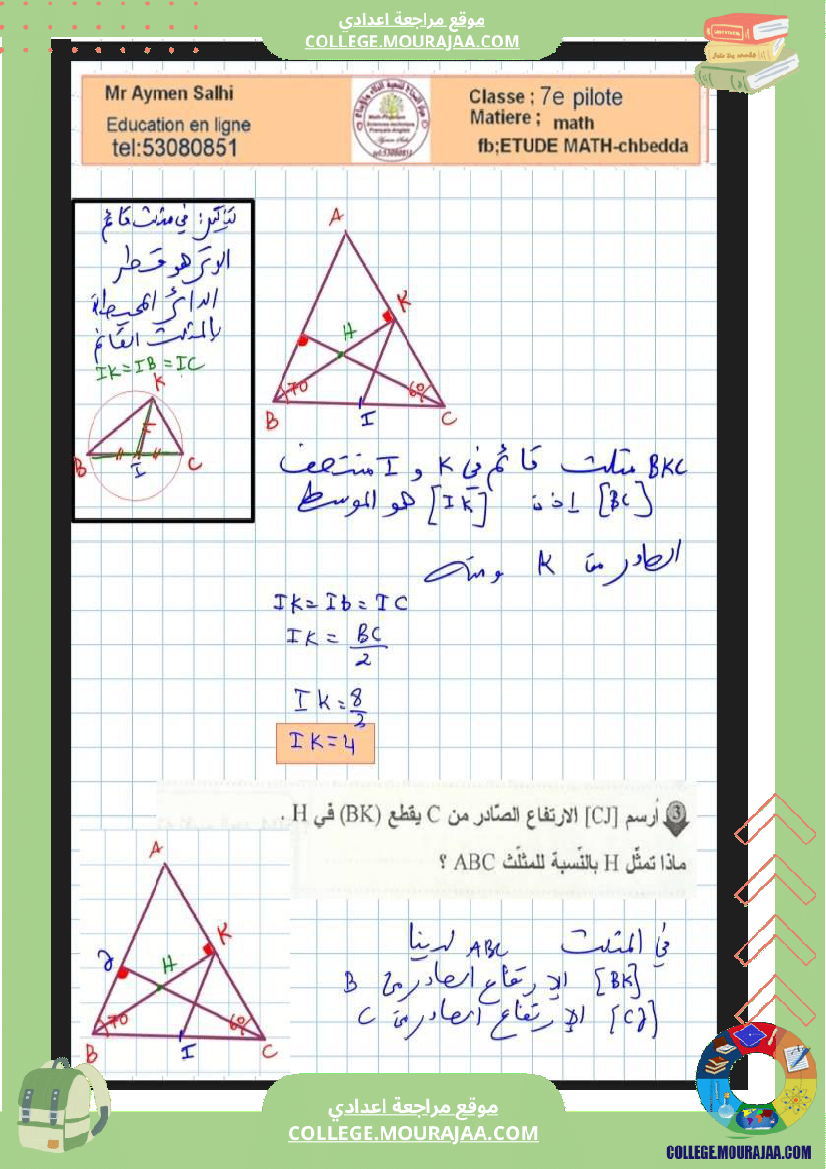 موقع مراجعة اعدادي
COLLEGE.MOURAJAA.COM
Mr Aymen Salhi
Education en ligne
tel:53080851
Classe ; 7e pilote
Matiere ; math
fb;ETUDE MATH-chbedda
تذكير: في مثلث قائم
الوتر هو قطر
الدائرة المحيطة
بالمثلث القائم
IK=IB=IC
K
B
I
C
A
K
H
70
60
B
I
C
BKC مثلث قائم في K و I منتصف
[BC] إذن [IK] هو الموسط
الصادر من K ومنه
IK=Ib=IC
IK= BC/2
IK=8/2
IK=4
3 أرسم [CJ] الارتفاع الصّادر من C يقطع (BK) في H .
ماذا تمثّل H بالنّسبة للمثلّث ABC ؟
A
K
H
70
60
B
I
C
في المثلث ABC لدينا
[BK] الإرتفاع الصادر من B
[CJ] الإرتفاع الصادر من C
موقع مراجعة اعدادي
COLLEGE.MOURAJAA.COM
COLLEGE.MOURAJAA.COM